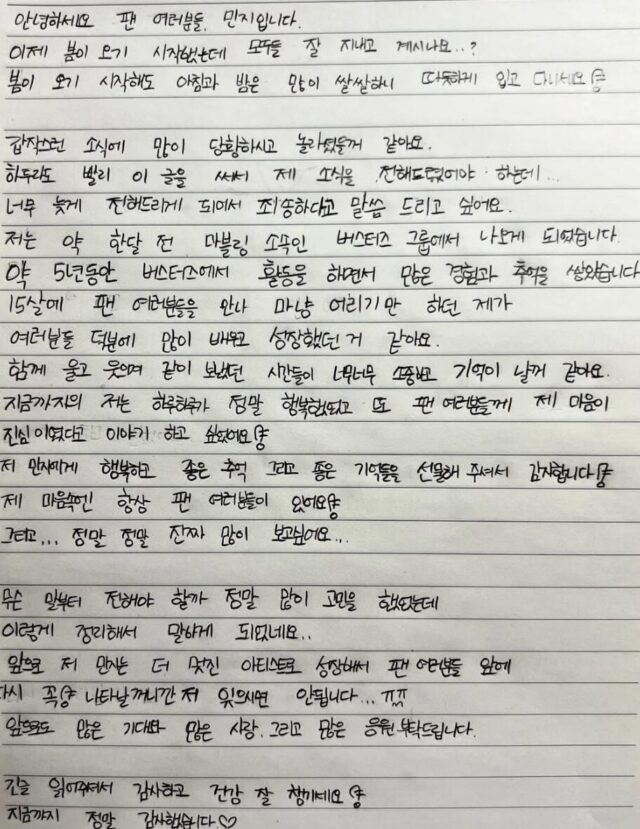 안녕하세요 팬 여러분들, 민지입니다.
이제 봄이 오기 시작했는데 모두들 잘 지내고 계시나요..?
봄이 오기 시작해도 아침과 밤은 많이 쌀쌀하니 따뜻하게 입고 다니세요
갑작스런 소식에 많이 당황하시고 놀라셨을꺼 같아요.
하루라도 빨리 이 글을 써서 제 소식을 전해드렸어야 하는데...
너무 늦게 전해드리게 되어서 죄송하다고 말씀 드리고 싶어요.
저는 약 한달 전 마블링 소속인 버스터즈 그룹에서 나오게 되었습니다.
약 5년동안 버스터즈에서 활동을 하면서 많은 경험과 추억을 쌓았습니다
15살에 팬 여러분들을 만나 마냥 어리기만 하던 제가
여러분들 덕분에 많이 배우고 성장했던 거 같아요.
함께 울고 웃으며 같이 보냈던 시간들이 너무너무 소중하고 기억이 날꺼 같아요.
지금까지의 저는 하루하루가 정말 행복했었고 또 팬 여러분들께 제 마음이
진심이였다고 이야기 하고 싶었어요
저 민지에게 행복하고 좋은 추억 그리고 좋은 기억들을 선물해 주셔서 감사합니다
제 마음속엔 항상 팬 여러분들이 있어요
그리고... 정말 정말 진짜 많이 보고싶어요...
무슨 말부터 전해야 할까 정말 많이 고민을 했었는데
이렇게 정리해서 말하게 되었네요..
앞으로 저 민지는 더 멋진 아티스트로 성장해서 팬 여러분들 앞에
다시 꼭 나타날꺼니깐 저 잊으시면 안됩니다...ㅠㅠ
앞으로도 많은 기대와 많은 사랑, 그리고 많은 응원 부탁드립니다.
긴글 읽어주셔서 감사하고 건강 잘 챙기세요
지금까지 정말 감사했습니다.♡